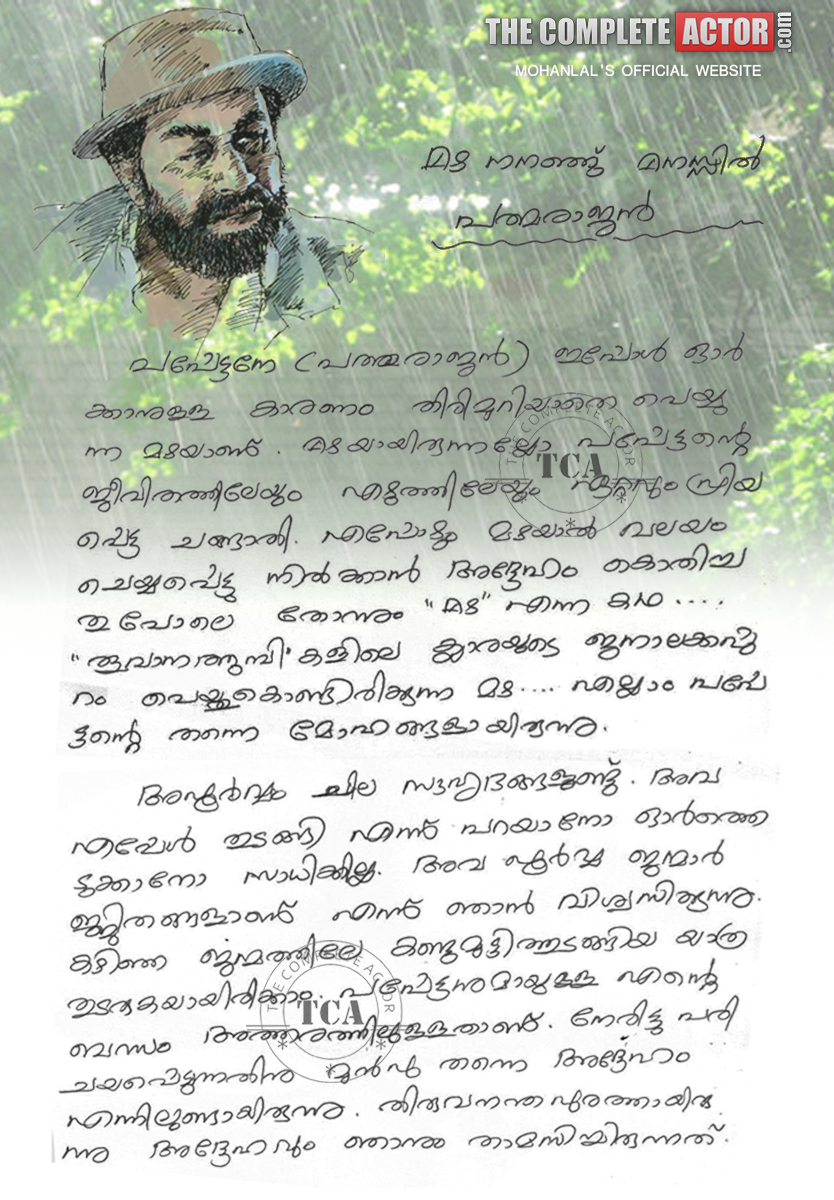 THE COMPLETE ACTOR.com
MOHANLAL'S OFFICIAL WEBSITE
മഴ നനഞ്ഞ് മനസ്സിൽ
പത്മരാജൻ
പപ്പേട്ടനേ (പത്മരാജൻ) ഇപ്പോൾ ഓർ
ക്കാനുള്ള കാരണം തിരിമുറിയാതെ പെയ്യു
ന്ന മഴയാണ്. മഴയായിരുന്നല്ലോ പപ്പേട്ടന്റെ
ജീവിതത്തിലേയും എഴുത്തിലേയും ഏറ്റവും പ്രിയ
പ്പെട്ട ചങ്ങാതി. എപ്പോഴും മഴയാൽ വലയം
ചെയ്യപ്പെട്ടു നിൽക്കാൻ അദ്ദേഹം കൊതിച്ച
തു പോലെ തോന്നും "മഴ" എന്ന കഥ ....
"തൂവാനത്തുമ്പി"കളിലെ ക്ലാരയുടെ ജനാലക്കപ്പു
റം പെയ്തുകൊണ്ടിരിക്കുന്ന മഴ.... എല്ലാം പപ്പേ
ട്ടന്റെ തന്നെ മോഹങ്ങളായിരുന്നു.
അപൂർവ്വം ചില സൗഹൃദങ്ങളുണ്ട്. അവ
എപ്പോൾ തുടങ്ങി എന്ന് പറയാനോ ഓർത്തെ
ടുക്കാനോ സാധിക്കില്ല. അവ പൂർവ്വ ജന്മാർ
ജ്ജിതങ്ങളാണ് എന്ന് ഞാൻ വിശ്വസിക്കുന്നു.
കഴിഞ്ഞ ജന്മത്തിലേ കണ്ടുമുട്ടിത്തുടങ്ങിയ യാത്ര
തുടരുകയായിരിക്കാം. പപ്പേട്ടനുമായുള്ള എന്റെ
ബന്ധം അത്തരത്തിലുള്ളതാണ്. നേരിട്ടു പരി
ചയപ്പെടുന്നതിനു മുൻപ് തന്നെ അദ്ദേഹം
എന്നിലുണ്ടായിരുന്നു. തിരുവനന്തപുരത്തായിരു
ന്നു അദ്ദേഹവും ഞാനും താമസിച്ചിരുന്നത്.
THE COMPLETE ACTOR
TCA
THE COMPLETE ACTOR
TCA